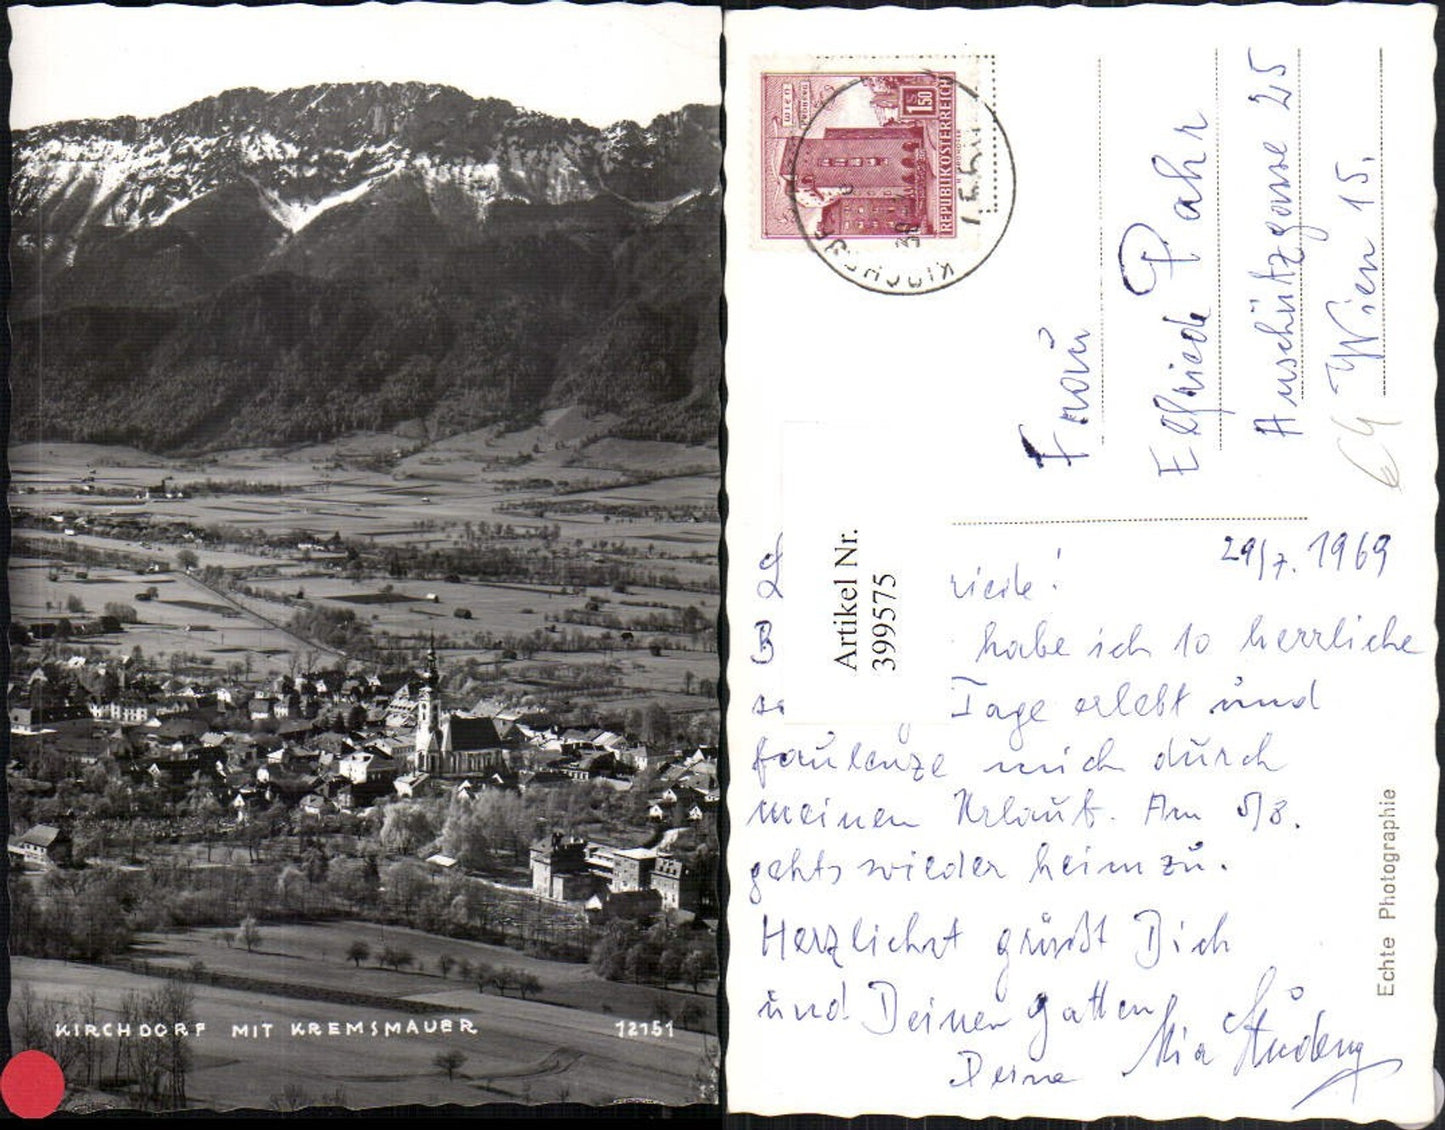 KIRCHDORF MIT KREMSMAUER 12151
Wien
S 1.50
REPUBLIK ÖSTERREICH
KIRCHDORF
Frau
Elfriede Pahr
Anschützgasse 25
Wien 15.
Artikel Nr.
399575
29/7. 1969
riede!
B habe ich 10 herrliche
Tage erlebt und
faulenze mich durch
meinen Urlaub. Am 5/8.
gehts wieder heimzu.
Herzlichst grüßt Dich
und Deinen Gatten
Deine Mia
Echte Photographie